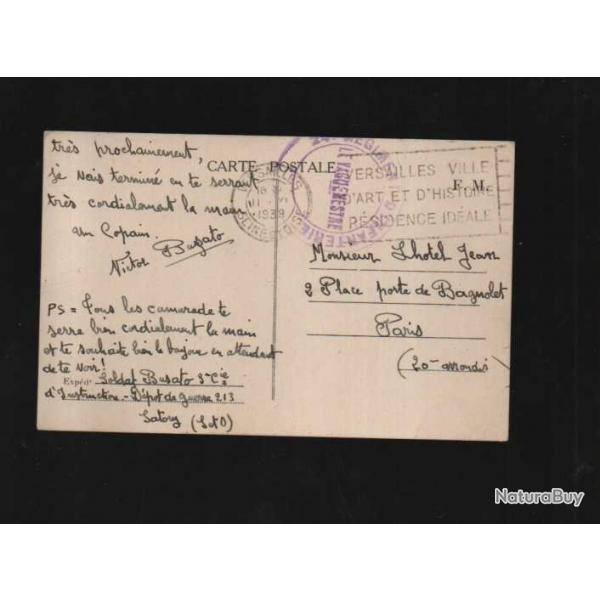 très prochainement,
je vais terminé en te serrant
très cordialement la main
un Copain.
Victor Busato
PS = Tous les camarade te
serre bien cordialement la main
et te souhaite bien le bonjour en attendant
de te voir!
Expéd. Soldat Busato 3e Cie
d'Instruction - Dépôt de guerre 213
Satory (S et O)
CARTE POSTALE
VERSAILLES
1939
SEINE ET OISE
LE VAGUEMESTRE
D'INFANTERIE
VERSAILLES VILLE
D'ART ET D'HISTOIRE
RÉSIDENCE IDÉALE
F. M.
Monsieur Lhotel Jean
2 Place porte de Bagnolet
Paris
(20e arrondis
NaturaBuy